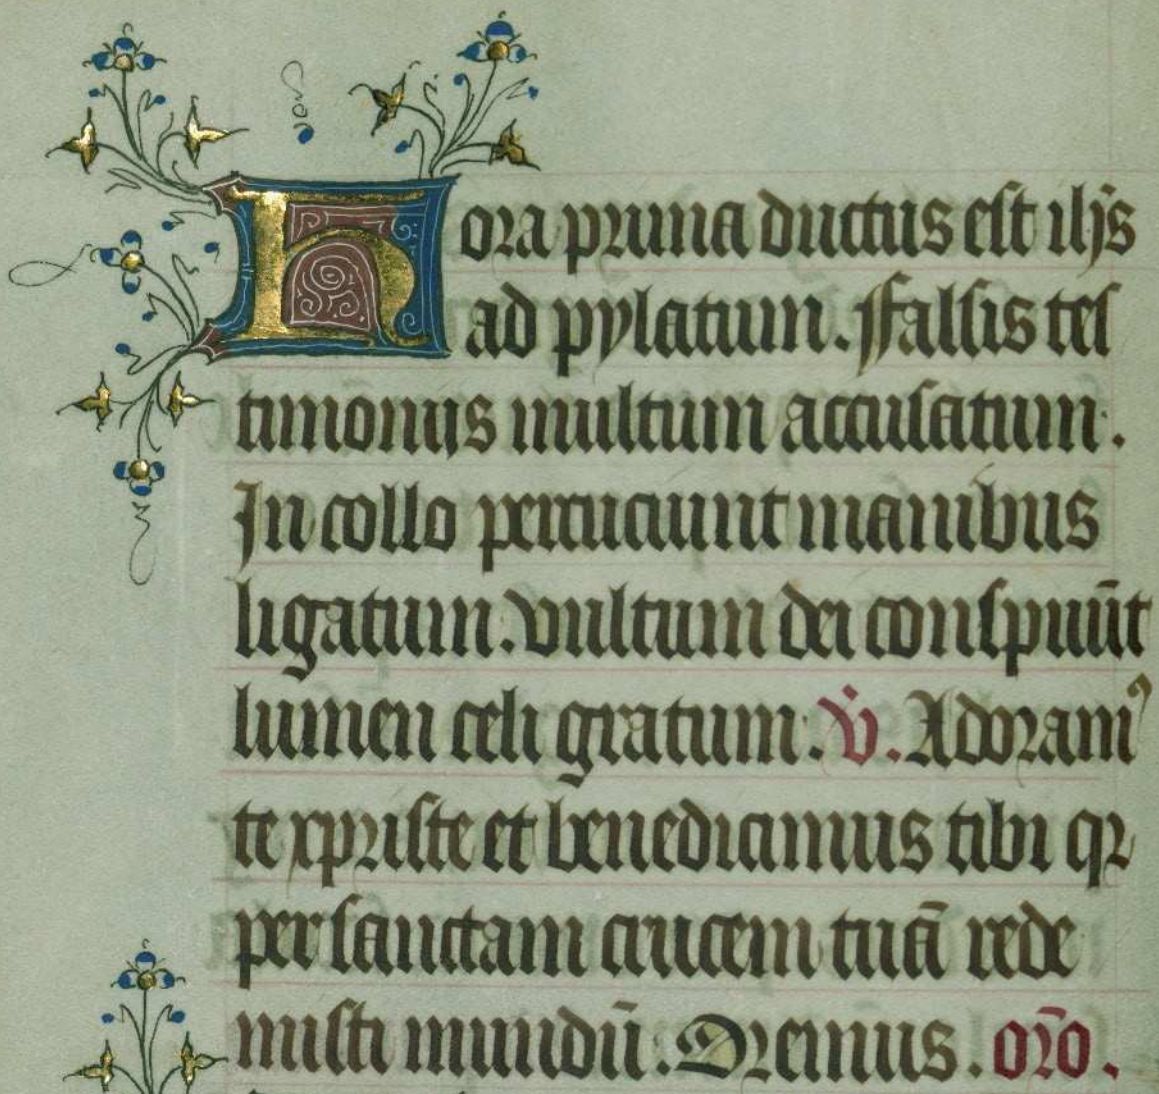 Hora prima ductus est ih̅s
ad pylatum. Falsis tes
timonijs multum accusatum.
In collo percuciunt manibus
ligatum. Vultum dei conspuūt
lumen celi gratum. V̇. Adoramꝰ
te xpriste et benedicimus tibi qꝛ
per sanctam crucem tuā rede
misti mundū. Oremus. or̄o.